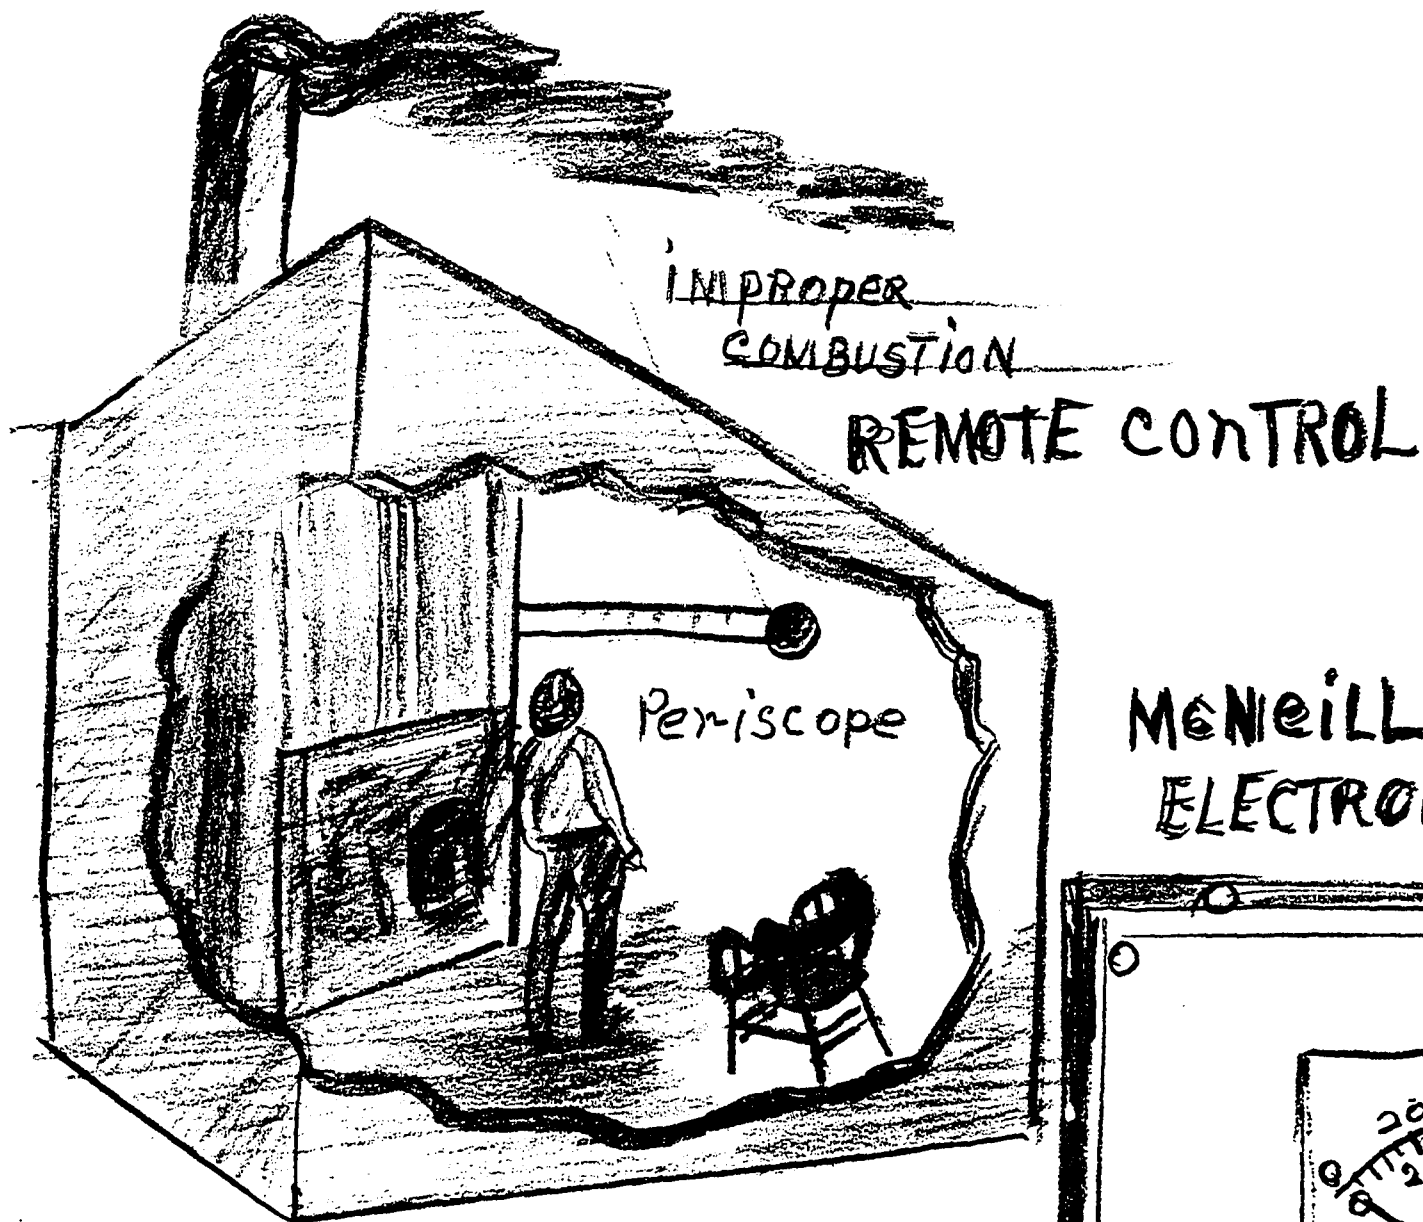 iMPRopeR
COMBUSTioN
REMOTE CONTROL
Periscope
McNeiLL